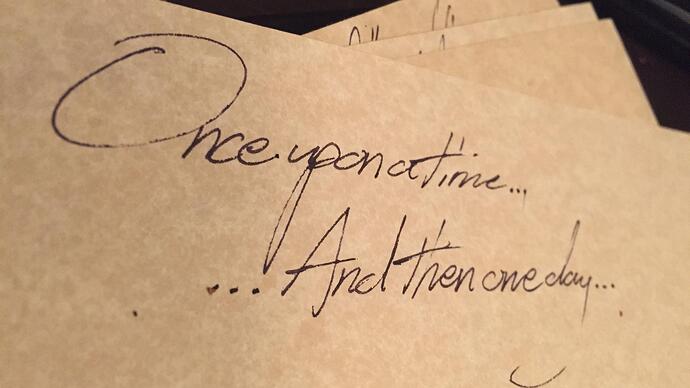 Once upon a time...
... And then one day...